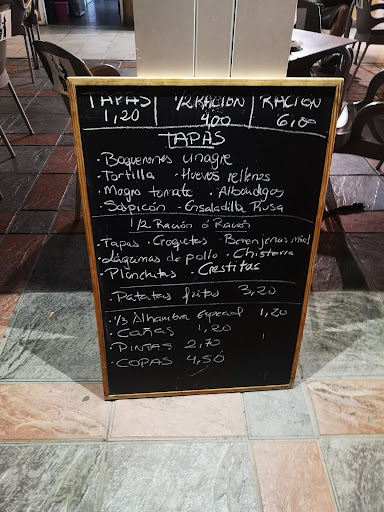 TAPAS 1/2 RACION RACION
1,20 4,00 6,00
TAPAS
· Boquerones vinagre
· Tortilla · Huevos rellenos
· Magro tomate · Albóndigas
· Salpicón · Ensaladilla Rusa
1/2 Ración ó Ración
· Tapas · Croquetas · Berenjenas miel
· Lágrimas de pollo · Chistorra
· Planchitas · Crestitas
· Patatas fritas 3,20
· 1/3 Alhambra especial 1,20
· CAÑAS 1,20
· PINTAS 2,70
· COPAS 4,50